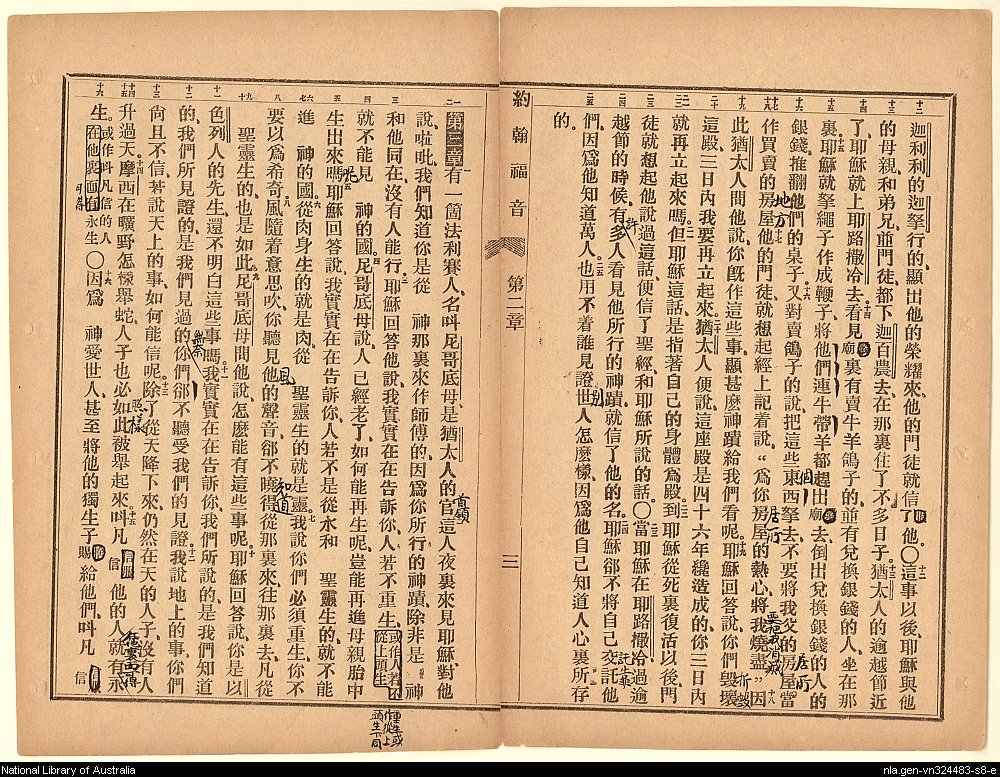 迦利利的迦拏行的、顯出他的榮耀來他的門徒就信了他、〇這事以後、耶穌與他
的母親、和弟兄、並門徒都下迦百農去、在那裏住了不多日子、猶太人的逾越節近
了、耶穌就上耶路撒冷去看見廟裏有賣牛羊鴿子的、並有兌換銀錢的人、坐在那
裏、耶穌就拏繩子作成鞭子、將他們連牛帶羊都趕出廟去、倒出兌換銀錢的人的
銀錢、推翻他們的桌子又對賣鴿子的說把這些東西拏去不要將我父的房屋當
作買賣的房屋他的門徒就想起經上記着說、“爲你房屋的熱心將我燒盡”因
此猶太人問他說、你旣作這些事顯甚麽神蹟給我們看呢耶穌回答說你們毀壞
這殿三日內我要再立起來猶太人便說這座殿是四十六年纔造成的你三日內
就再立起來嗎但耶穌這話、是指著自己的身體爲殿到耶穌從死裏復活以後門
徒就想起他說過這話便信了聖經和耶穌所說的話、〇當耶穌在耶路撒冷過逾
越節的時候有多人看見他所行的神蹟就信了他的名耶穌卻不將自己交託他
們、因爲他知道萬人也用不着誰見證世人怎麽樣因爲他自己知道人心裏所存
的、
約翰福音 第二章 三
第三章有一箇法利賽人、名呌尼哥底母、是猶太人的官這人夜裏來見耶穌、對他
說、啦吡、我們知道你是從 神那裏來作師傅的、因爲你所行的神蹟、除非是 神
和他同在、沒有人能行、耶穌回答他說、我實實在在告訴你、人若不重生、或作人若不從上頭生
就不能見 神的國、尼哥底母說、人已經老了、如何能再生呢豈能再進母親胎中
生出來嗎耶穌回答說、我實實在在告訴你、人若不是從水和 聖靈生的、就不能
進 神的國從肉身生的就是肉、從 聖靈生的就是靈我說你們必須重生、你不
要以爲希奇風隨着意思吹、你聽見他的聲音卻不曉得從那裏來往那裏去凡從
聖靈生的、也是如此、尼哥底母問他說、怎麽能有這些事呢耶穌回答說你是以
色列人的先生、還不明白這些事嗎我實實在在告訴你、我們所說的、是我們知道
的、我們所見證的、是我們見過的、你們卻不聽受我們的見證我說地上的事、你們
尙且不信若說天上的事、如何能信呢除了從天降下來、仍然在天的人子、沒有人
升過天摩西在曠野怎樣舉蛇、人子也必如此被舉起來呌凡 信 他的人、就有永
生、或作呌凡信的人在他裏面有永生〇因爲 神愛世人、甚至將他的獨生子賜給他們呌凡 信
地方
居所
居所
拆毀
許
別
首領
風
知道
照樣
信服
重生或作從上頭生下同
National Library of Australia
nla.gen-vn324483-s8-e